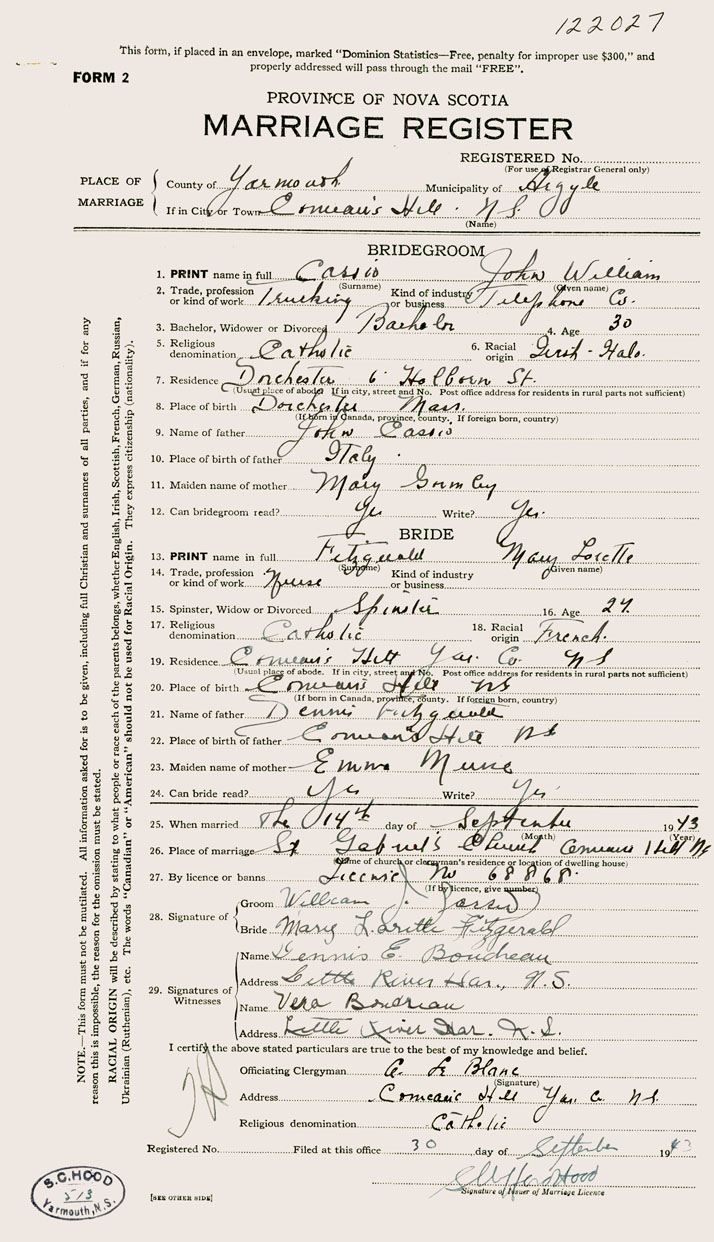 122027
This form, if placed in an envelope, marked "Dominion Statistics—Free, penalty for improper use $300," and
properly addressed will pass through the mail "FREE".
FORM 2
PROVINCE OF NOVA SCOTIA
MARRIAGE REGISTER
REGISTERED No.
(For use of Registrar General only)
PLACE OF MARRIAGE
County of Yarmouth Municipality of Argyle
If in City or Town Comeau's Hill. N S.
(Name)
BRIDEGROOM
1. PRINT name in full Cassio John William
(Surname) (Given name)
2. Trade, profession or kind of work Trucking Kind of industry or business Telephone Co.
3. Bachelor, Widower or Divorced Bachelor 4. Age 30
5. Religious denomination Catholic 6. Racial origin Irish - Italo.
7. Residence Dorchester 6 Holborn St.
(Usual place of abode. If in city, street and No. Post office address for residents in rural parts not sufficient)
8. Place of birth Dorchester Mass.
(If born in Canada, province, county. If foreign born, country)
9. Name of father John Cassio
10. Place of birth of father Italy.
11. Maiden name of mother Mary Gormley
12. Can bridegroom read? Yes Write? Yes.
BRIDE
13. PRINT name in full Fitzgerald Mary Loretta
(Surname) (Given name)
14. Trade, profession or kind of work Nurse Kind of industry or business
15. Spinster, Widow or Divorced Spinster 16. Age 27.
17. Religious denomination Catholic 18. Racial origin French.
19. Residence Comeau's Hill Yar. Co. N S
(Usual place of abode. If in city, street and No. Post office address for residents in rural parts not sufficient)
20. Place of birth Comeau's Hill NS
(If born in Canada, province, county. If foreign born, country)
21. Name of father Dennis Fitzgerald
22. Place of birth of father Comeau's Hill NS
23. Maiden name of mother Emma Muise
24. Can bride read? Yes Write? Yes.
25. When married The 14th day of September 1943
(Month) (Year)
26. Place of marriage St Gabriel's Church Comeau's Hill NS
(Name of church or clergyman's residence or location of dwelling house)
27. By licence or banns License No 68868.
(If by licence, give number)
28. Signature of
Groom William J. Cassio
Bride Mary Loretta Fitzgerald
29. Signatures of Witnesses
Name Dennis E. Boudreau
Address Little River Har., N.S.
Name Vera Boudreau
Address Little River Har. N.S.
I certify the above stated particulars are true to the best of my knowledge and belief.
Officiating Clergyman A. Le Blanc
(Signature)
Address Comeau's Hill Yar. Co. N S.
Religious denomination Catholic
Registered No. Filed at this office 30 day of September 1943
Signature of Issuer of Marriage Licence
[SEE OTHER SIDE]
S.C. HOOD
513
Yarmouth, N.S.
NOTE.—This form must not be mutilated. All information asked for is to be given, including full Christian and surnames of all parties, and if for any
reason this is impossible, the reason for the omission must be stated.
RACIAL ORIGIN will be described by stating to what people or race each of the parents belongs, whether English, Irish, Scottish, French, German, Russian,
Ukrainian (Ruthenian), etc. The words "Canadian" or "American" should not be used for Racial Origin. They express citizenship (nationality).